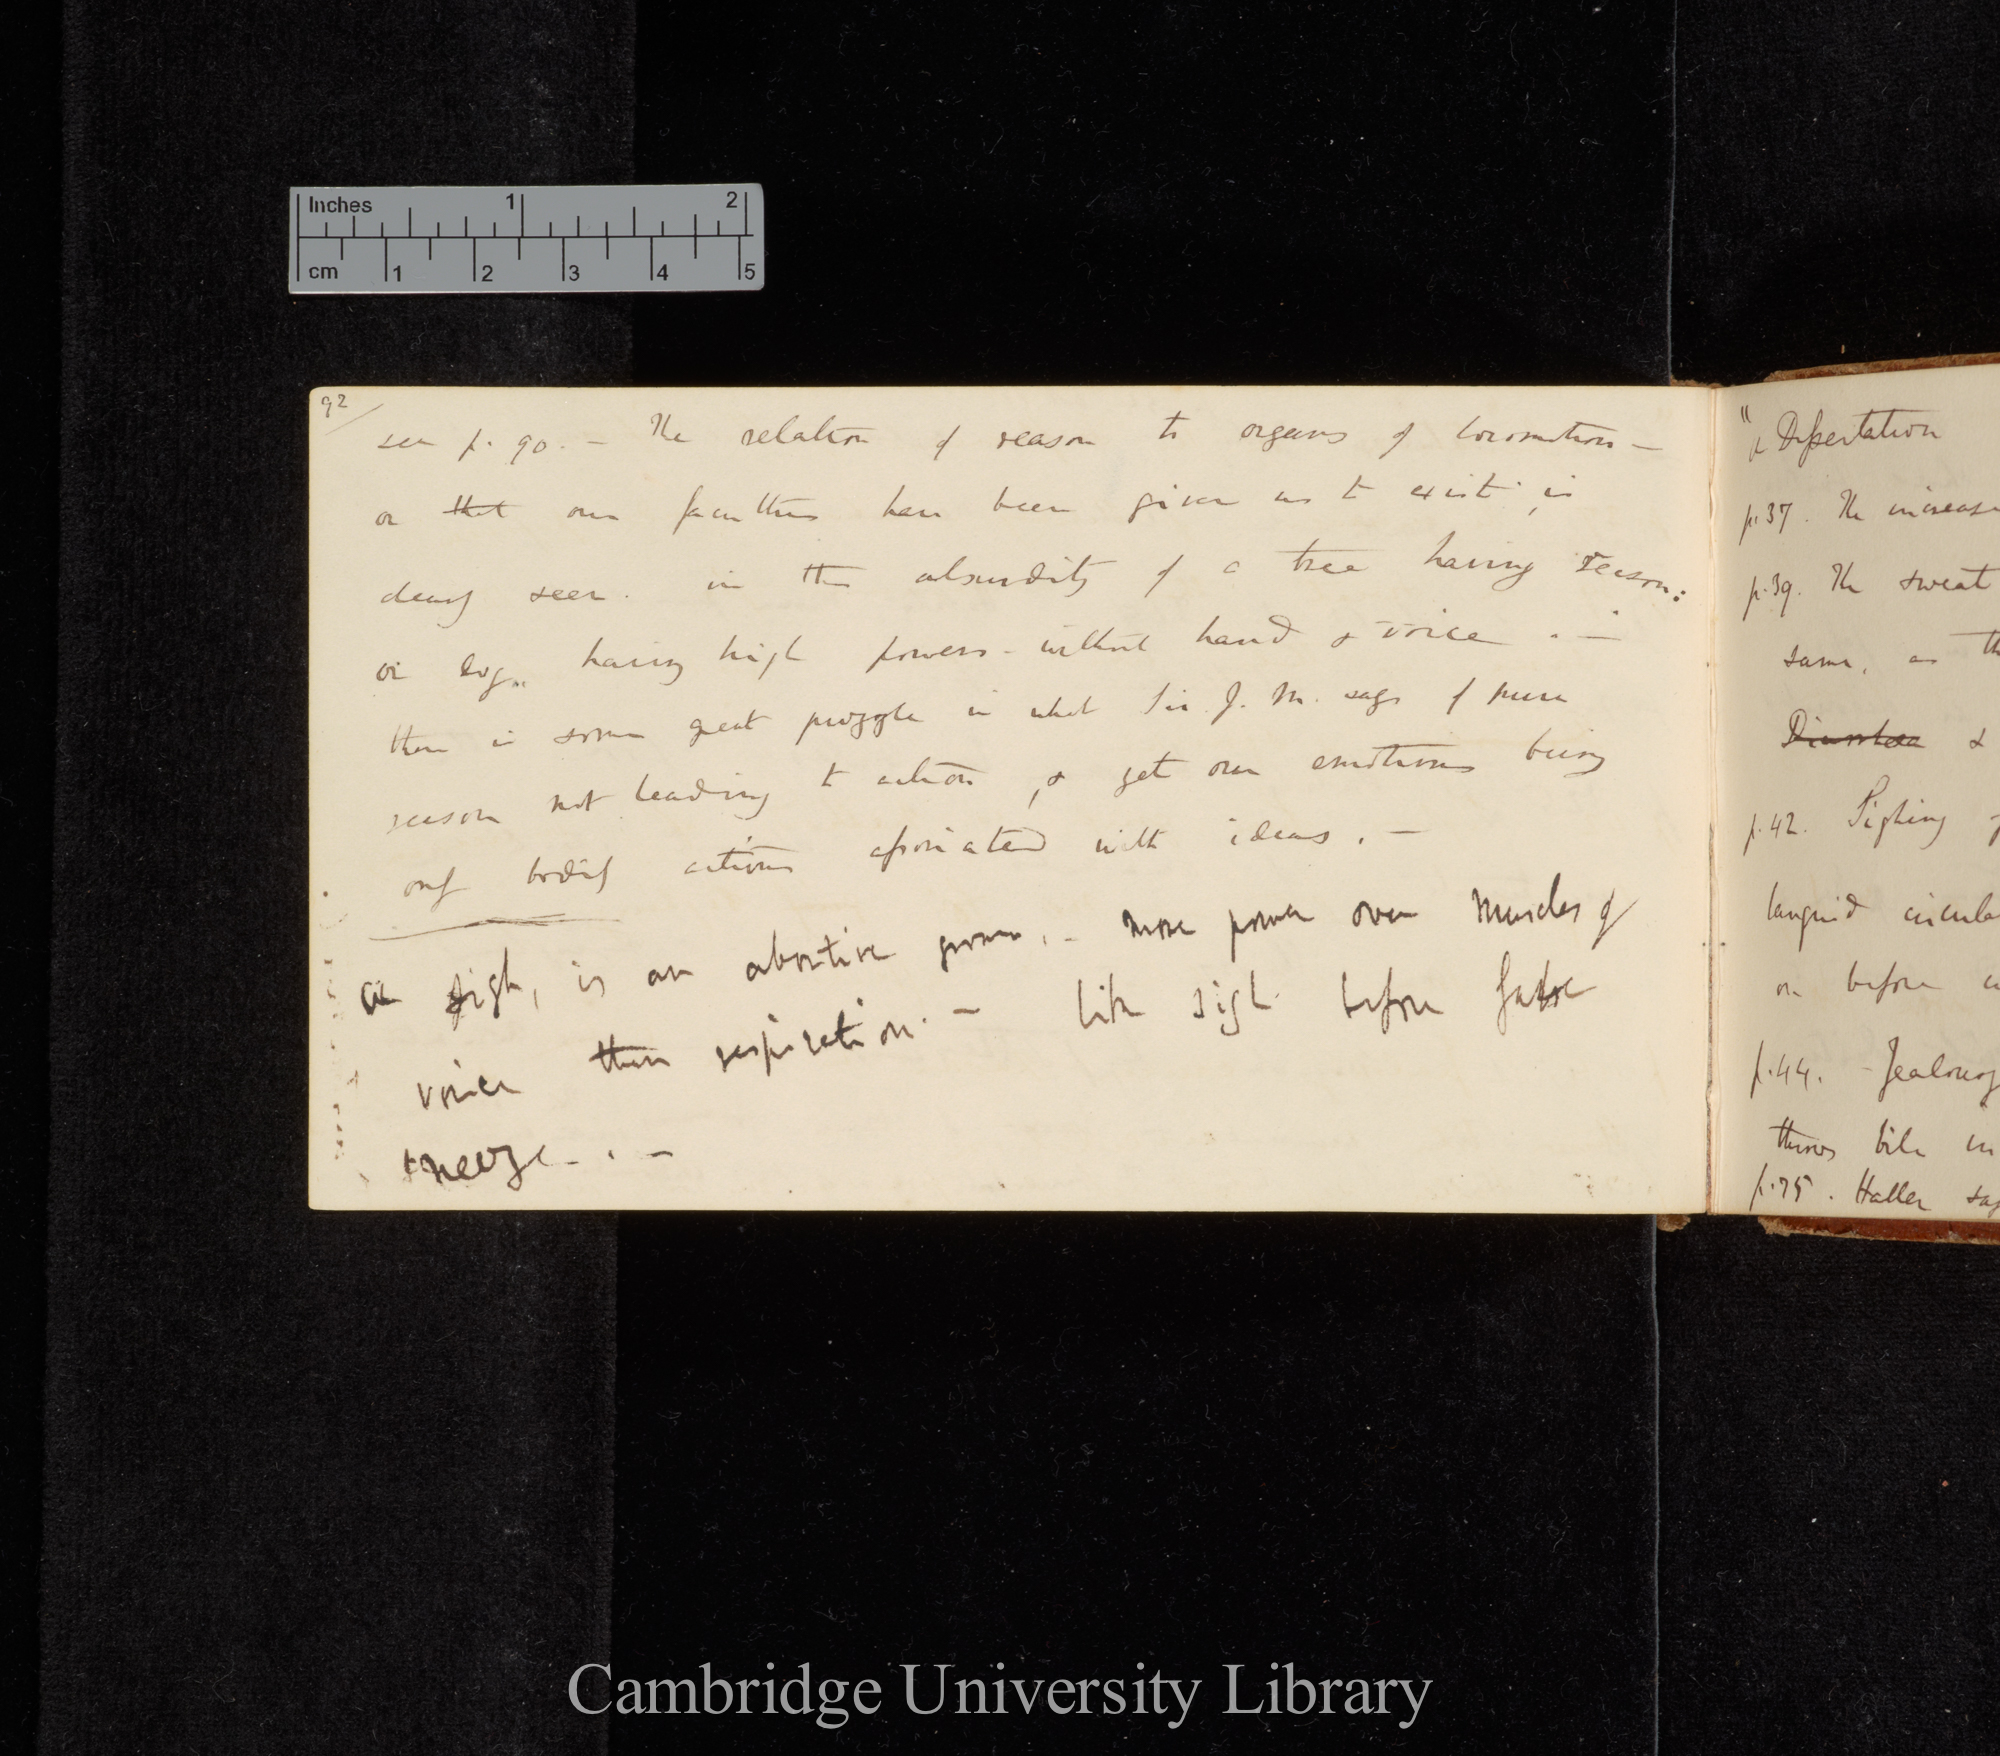 Inches 1 2
cm 1 2 3 4 5
92
see p. 90. — The relation of reason to organs of locomotion —
or that our faculties have been given us to exist, is
clearly seen. in the absurdity of a tree having reason:
or dog,, having high powers - without hand & voice. —
there is some great puzzle in what Sir. J. M. says of pure
reason not leading to action, & yet our emotions being
only bodily actions associated with ideas. —
a sigh, is an abortive groan. — more power over muscles of
voice than respiration. — like sigh before false
sneeze —. —
" Dissertation
p. 37. The increase
p. 39. The sweat
same, as
Diarrhea &
p. 42. Sighing
languid
or before
p. 44. - Jealousy
throws bile in
p. 75. Haller
Cambridge University Library